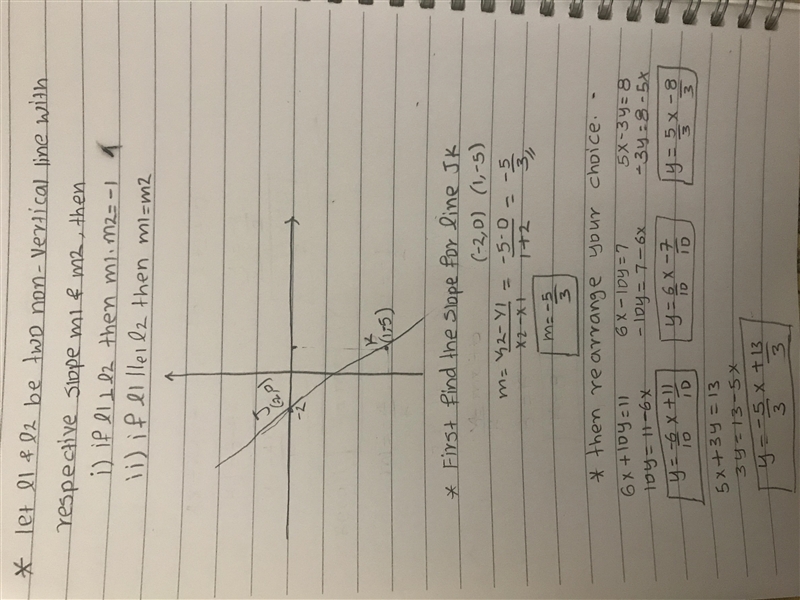 * let l1 & l2 be two non-vertical line with
respective slope m1 & m2, then
i) if l1 ⊥ l2 then m1. m2 = -1
ii) if l1 || l2 then m1 = m2
J
-2
K
(1,-5)
* First find the slope for line JK
(-2,0) (1,-5)
m = y2-y1 / x2-x1 = -5-0 / 1+2 = -5/3
m = -5/3
* then rearrange your choice.
6x+10y=11
10y=11-6x
y = -6/10 x + 11/10
6x-10y=7
-10y=7-6x
y = 6/10 x - 7/10
5x-3y=8
-3y=8-5x
y = 5/3 x - 8/3
5x+3y=13
3y=13-5x
y = -5/3 x + 13/3